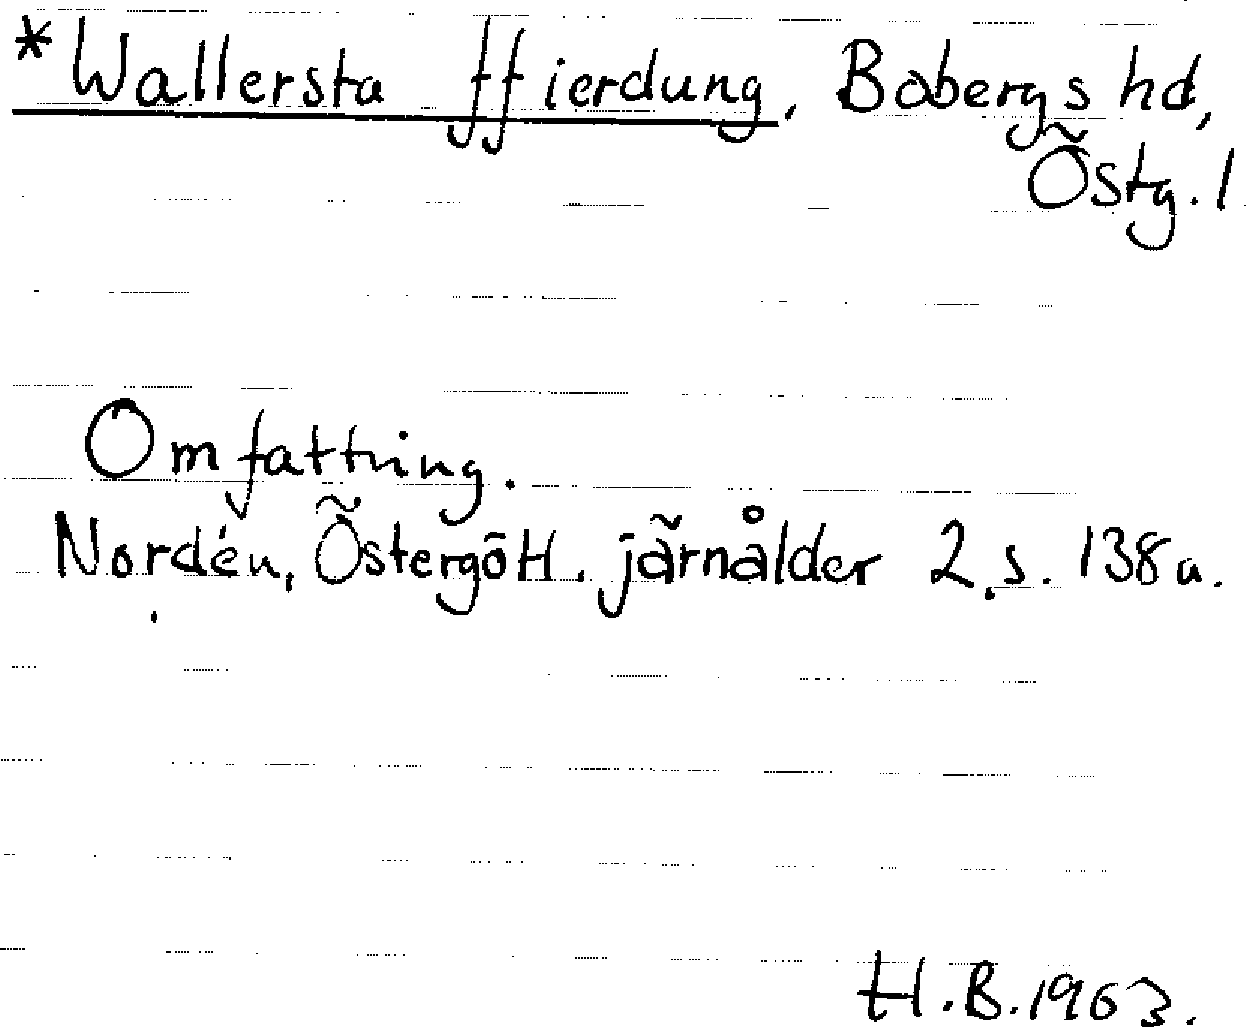 *Wallersta ffierdung, Bobergs hd,
Östg. l
Omfattning.
Nordén, Östergötl. järnålder 2. s. 138 a.
H.B. 1963.